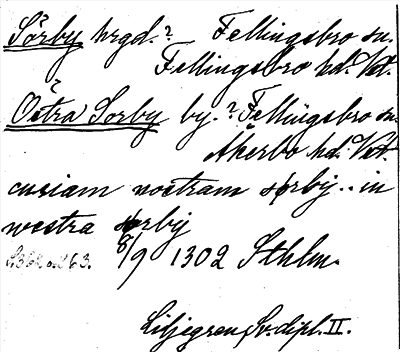 Sörby hrgd.? Fellingsbro sn.
Fellingsbro hd. Vst.
Östra Sörby by.? Fellingsbro sn.
Åkerbo hd. Vst.
curiam nostram sørbÿ.. in
westra sørbÿ
8/9 1302 Sthlm.
Liljegren, Sv. dipl. II.